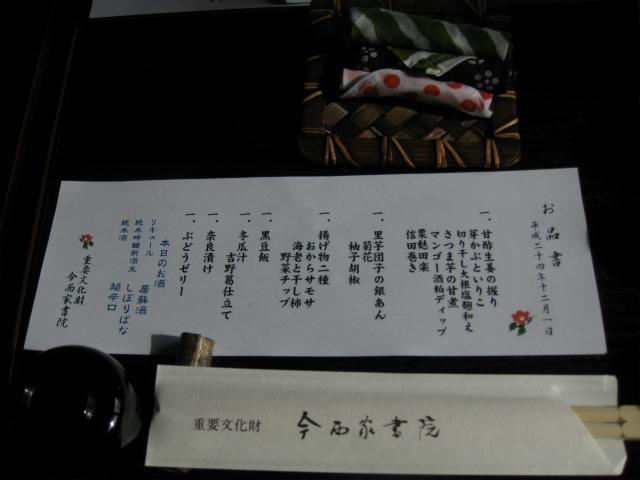 お品書
平成二十四年十二月一日
一、甘酢生姜の握り
芽かぶといりこ
切り干し大根塩麹和え
さつま芋の甘煮
マンゴー酒粕ディップ
粟麩田楽
信田巻き
一、里芋団子の銀あん
菊花
柚子胡椒
一、揚げ物二種
おからサモサ
海老と干し柿
野菜チップ
一、黒豆飯
一、冬瓜汁
吉野葛仕立て
一、奈良漬け
一、ぶどうゼリー
本日のお酒
リキュール 屠蘇酒
純米吟醸新酒生 しぼりばな
純米酒 超辛口
重要文化財
今西家書院
重要文化財 今西家書院